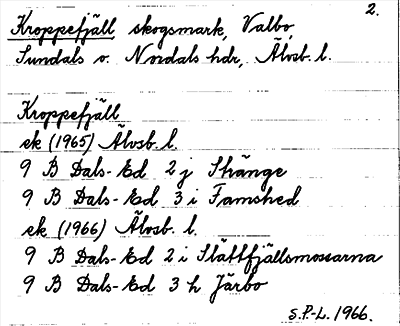 2.
Kroppefjäll, skogsmark, Valbo,
Sundals o. Nordals hdr, Älvsb. l.
Kroppefjäll
ek (1965) Älvsb. l.
9 B Dals-Ed 2 j Stränge
9 B Dals-Ed 3 i Famshed
ek (1966) Älvsb. l.
9 B Dals-Ed 2 i Slättfjällsmossarna
9 B Dals-Ed 3 h Järbo
S.P-L. 1966.